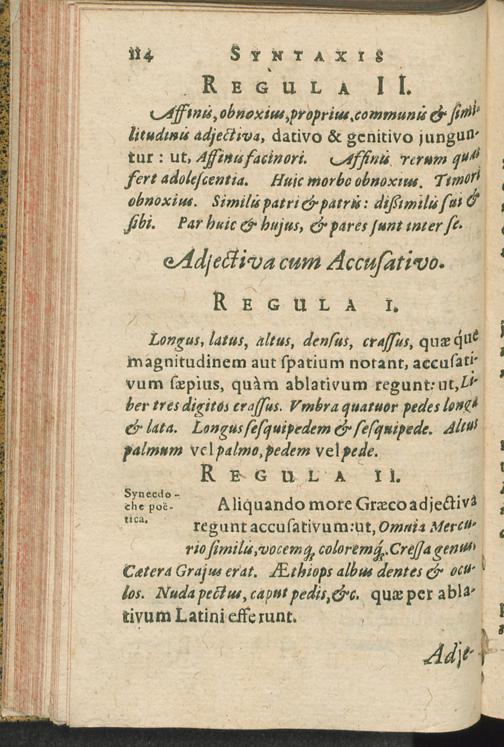 114 SYNTAXIS
REGULA II.
Affinis, obnoxius, proprius, communis & simi-
litudinis adjectiva, dativo & genitivo jungun-
tur : ut, Affinis facinori. Affinis rerum quas
fert adolescentia. Huic morbo obnoxius. Timori
obnoxius. Similis patri & patris : dißimilis sui &
sibi. Par huic & hujus, & pares sunt inter se.
Adjectiva cum Accusativo.
REGULA I.
Longus, latus, altus, densus, crassus, quæq́ue
magnitudinem aut spatium notant, accusati-
vum sæpius, quàm ablativum regunt: ut, Li-
ber tres digitos crassus. Vmbra quatuor pedes longa
& lata. Longus sesquipedem & sesquipede. Altus
palmum vel palmo, pedem vel pede.
REGULA II.
Synecdo-
che poë-
tica.
Aliquando more Græco adjectiva
regunt accusativum: ut, Omnia Mercu-
rio similis, vocemq́, coloremq́. Cressa genus,
Cætera Grajus erat. Æthiops albus dentes & ocu-
los. Nuda pectus, caput pedis, &c. quæ per abla-
tivum Latini efferunt.
Adje-